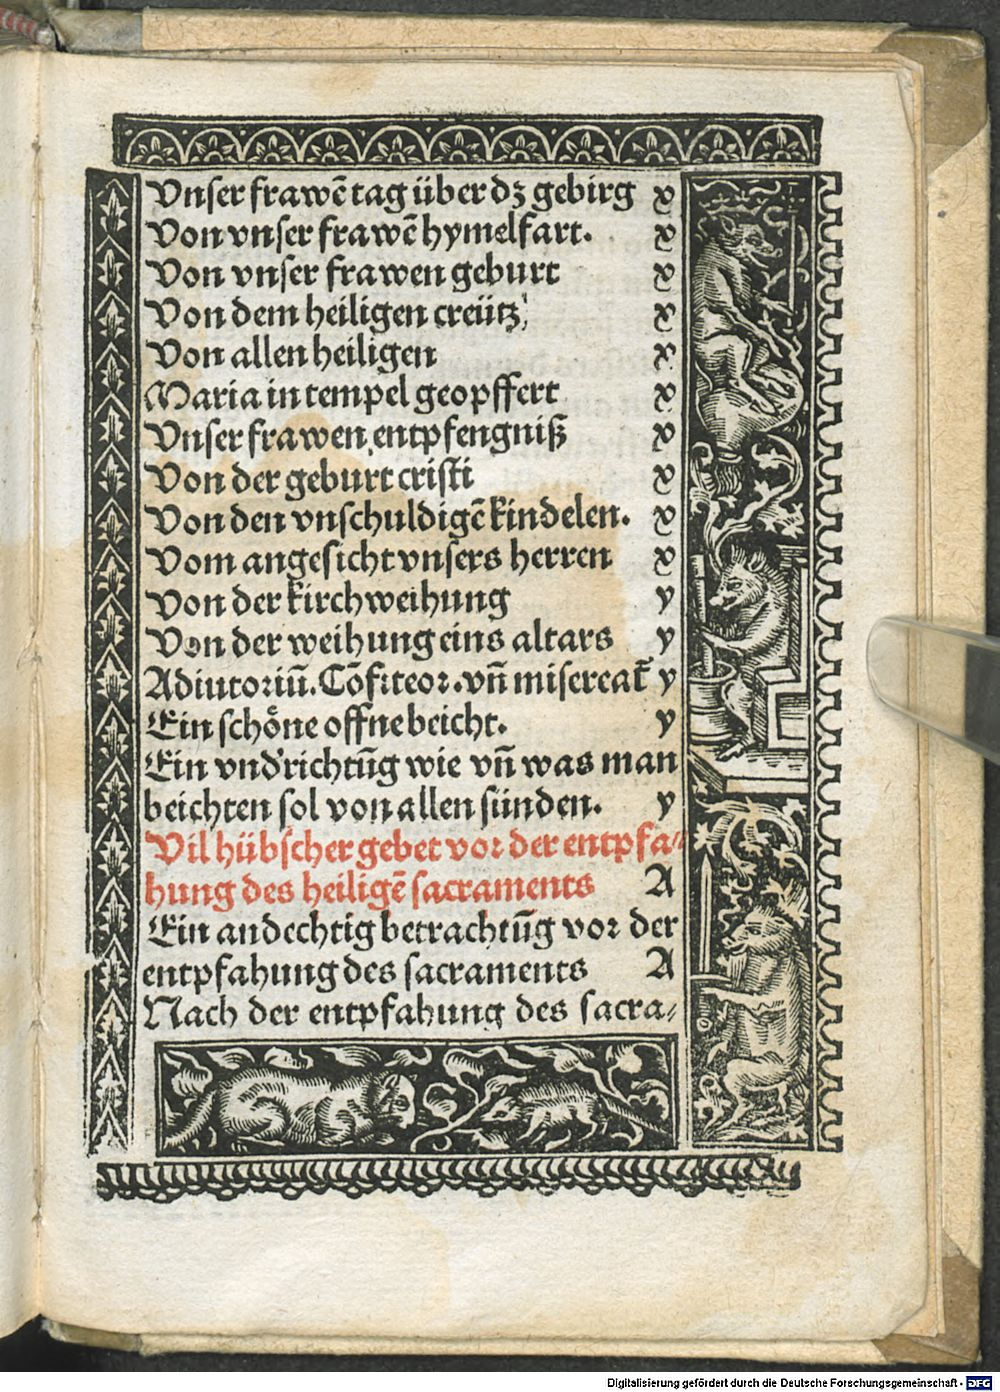 Vnser frawē tag über dz gebirg x
Von vnser frawē hymelfart. x
Von vnser frawen geburt x
Von dem heiligen creütz x
Von allen heiligen x
Maria in tempel geopffert x
Vnser frawen entpfengniß x
Von der geburt cristi x
Von den vnschuldigē kindelen. x
Vom angesicht vnsers herren x
Von der kirchweihung y
Von der weihung eins altars y
Adiutoriū. Cōfiteor. vn̄ misereat̄ y
Ein schöne offne beicht. y
Ein vnd'richtūg wie vn̄ was man
beichten sol von allen sünden. y
Vil hübscher gebet vor der entpfa⸗
hung des heiligē sacraments A
Ein andechtig betrachtūg vor der
entpfahung des sacraments A
Nach der entpfahung des sacra⸗
Digitalisierung gefördert durch die Deutsche Forschungsgemeinschaft - DFG